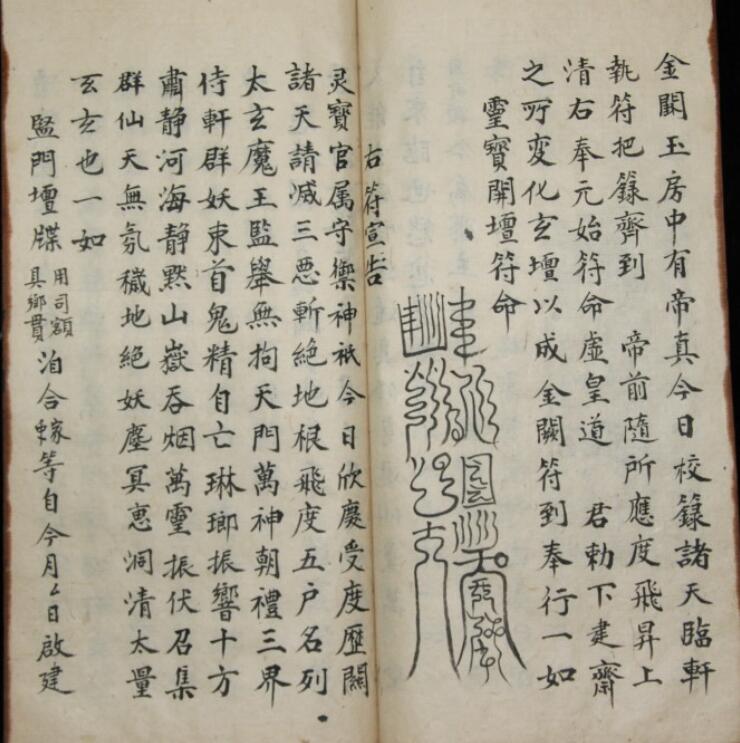 金闕玉房中有帝真今日校籙諸天臨軒
執符把籙齊到　帝前隨所應度飛昇上
清右奉元始符命虛皇道　君勅下建齋
之所变化玄壇以成金闕符到奉行一如
靈寳開壇符命
右符宣告
灵寳官属守禦神祇今日欣慶受度歷關
諸天請滅三惡斬絶地根飛度五户名列
太玄魔王監舉無拘天門萬神朝禮三界
侍軒群妖束首鬼精自亡琳瑯振響十方
肅静河海静黙山嶽吞烟萬靈振伏召集
群仙天無氛穢地絶妖塵冥惠洞清太量
玄玄也一如
監門壇牒 用司額 具鄉貫 洎合家等自今月厶日啟建